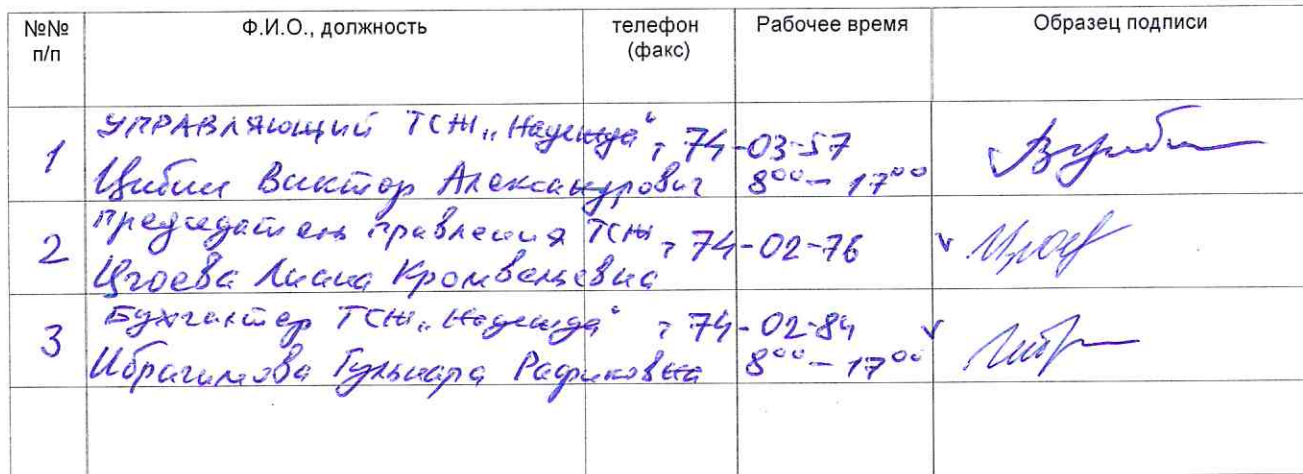 №№ п/п Ф.И.О., должность телефон (факс) Рабочее время Образец подписи
1 Управляющий ТСЖ „Надежда“, 74-03-57
Цибин Виктор Александрович 8⁰⁰ – 17⁰⁰
2 Председатель правления ТСЖ, 74-02-76
Цгоева Лиана Кромвельевна
3 Бухгалтер ТСЖ „Надежда“, 74-02-84
Ибрагимова Гульнара Рафиковна 8⁰⁰ – 17⁰⁰